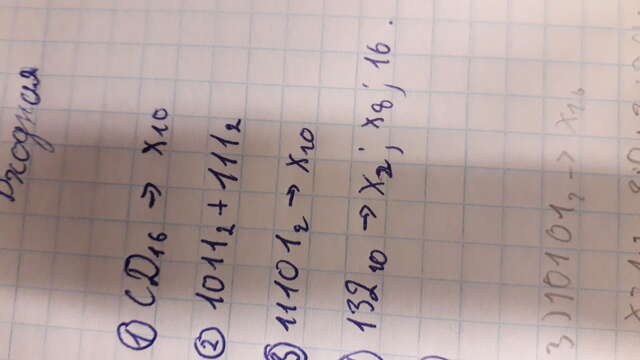 Входная
① CD₁₆ → x₁₀
② 1011₂ + 111₂
③ 11101₂ → x₁₀
) 132₁₀ → x₂; x₈; 16.
)
3) 10101₂ → x₁₆